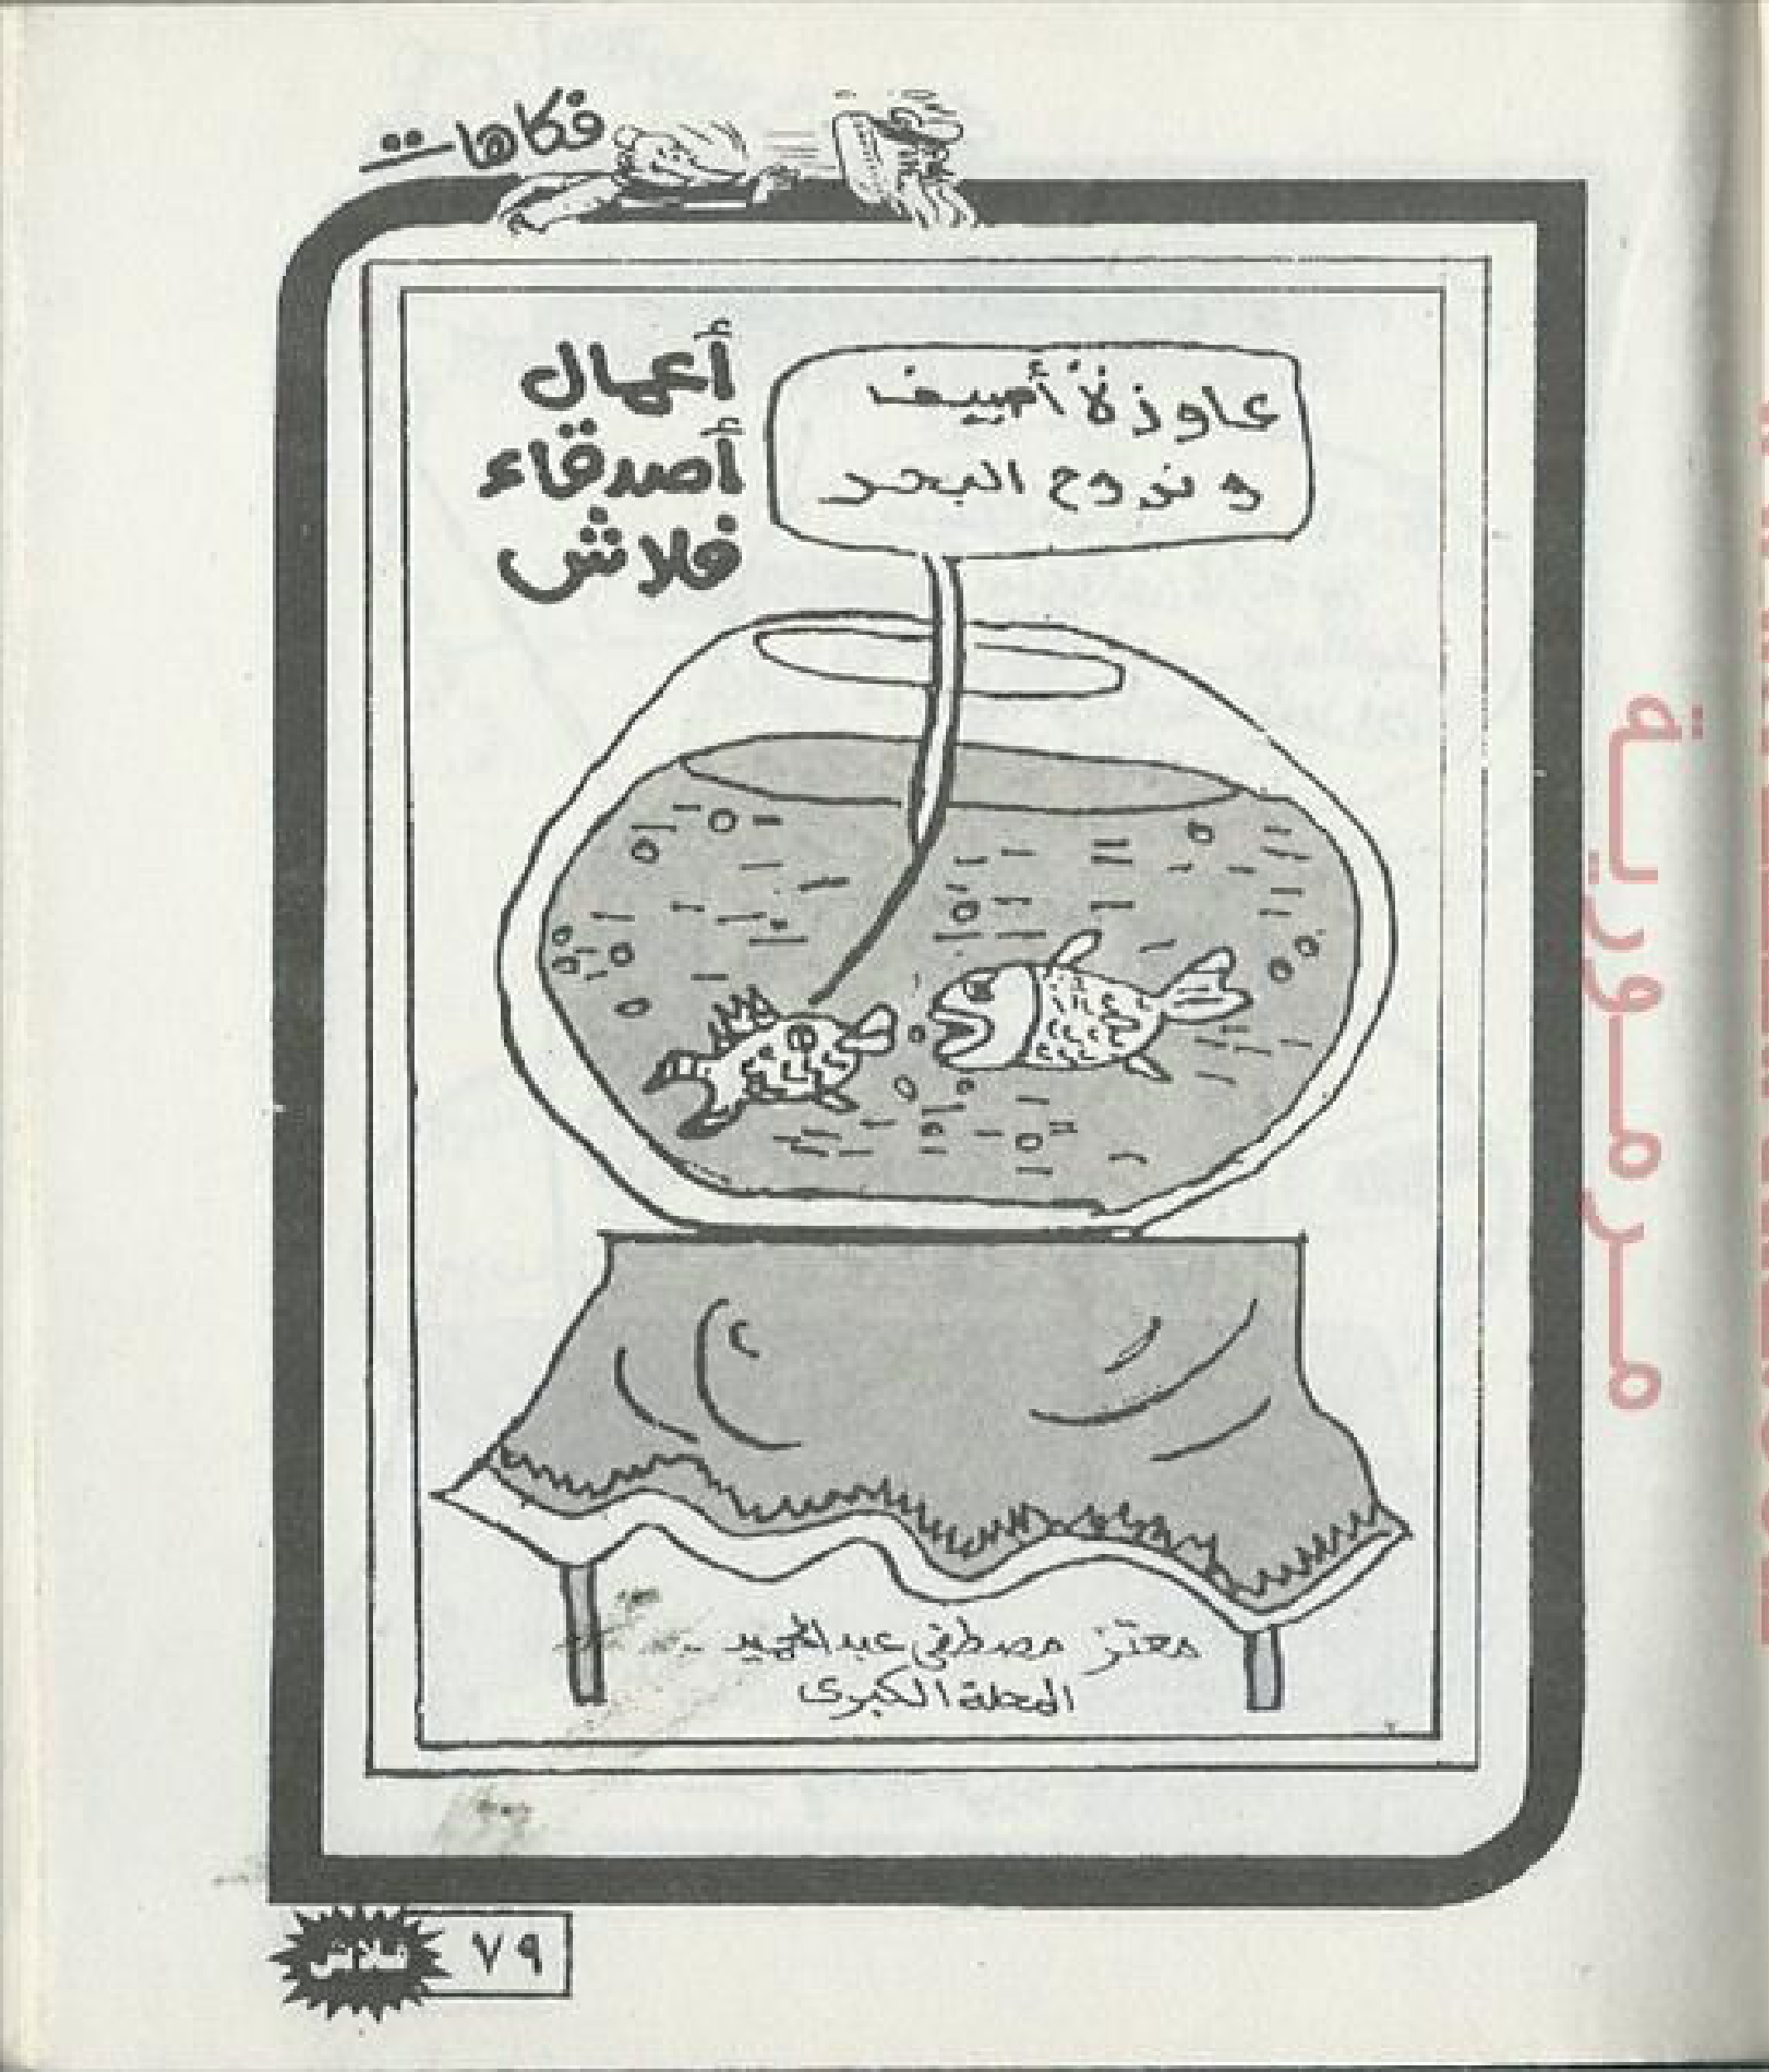 فكاهات
أعمال
أصدقاء
فلاش
عاوزة أصيف
ونروح البحر
معتز مصطفى عبد الحميد
المحلة الكبرى
٧٩
فلاش
مرمورية